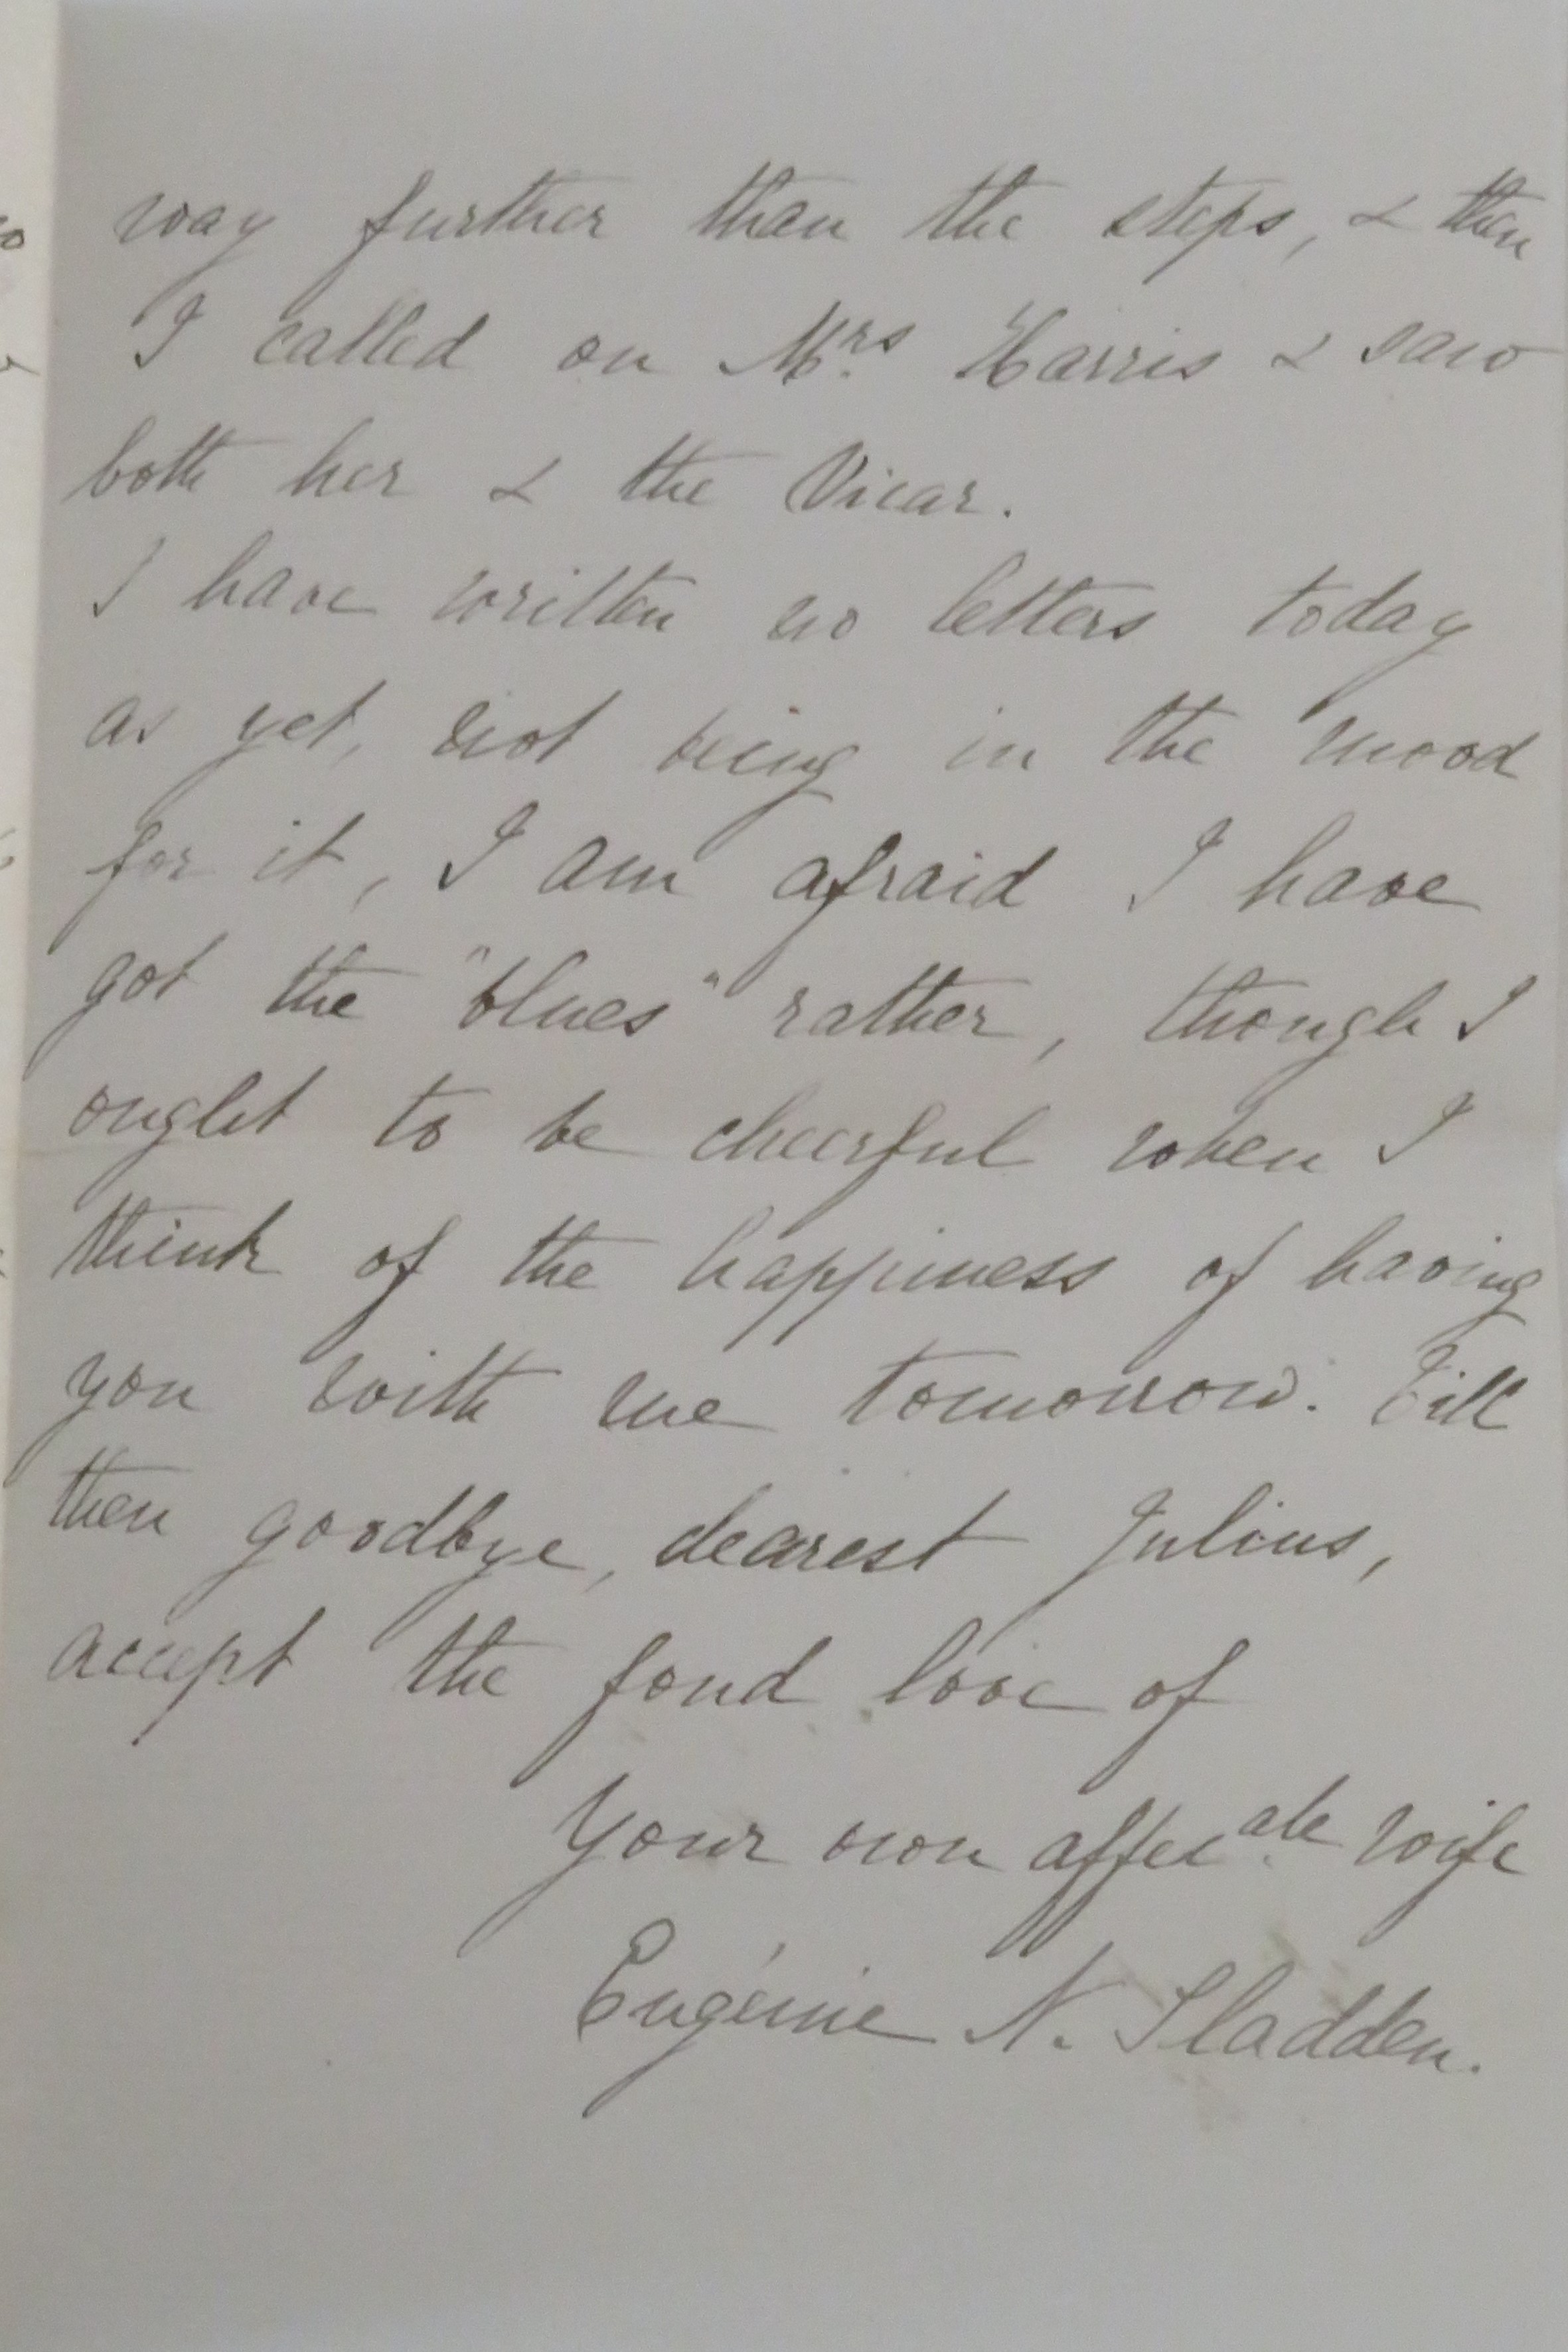 way further than the steps, & then
I called on Mrs Harris & saw
both her & the Vicar.
I have written no letters today
as yet, not being in the mood
for it, I am afraid I have
got the "blues" rather, though I
ought to be cheerful when I
think of the happiness of having
you with me tomorrow. Till
then goodbye, dearest Julius,
accept the fond love of
Your own affecate wife
Eugénie N. Sladden.